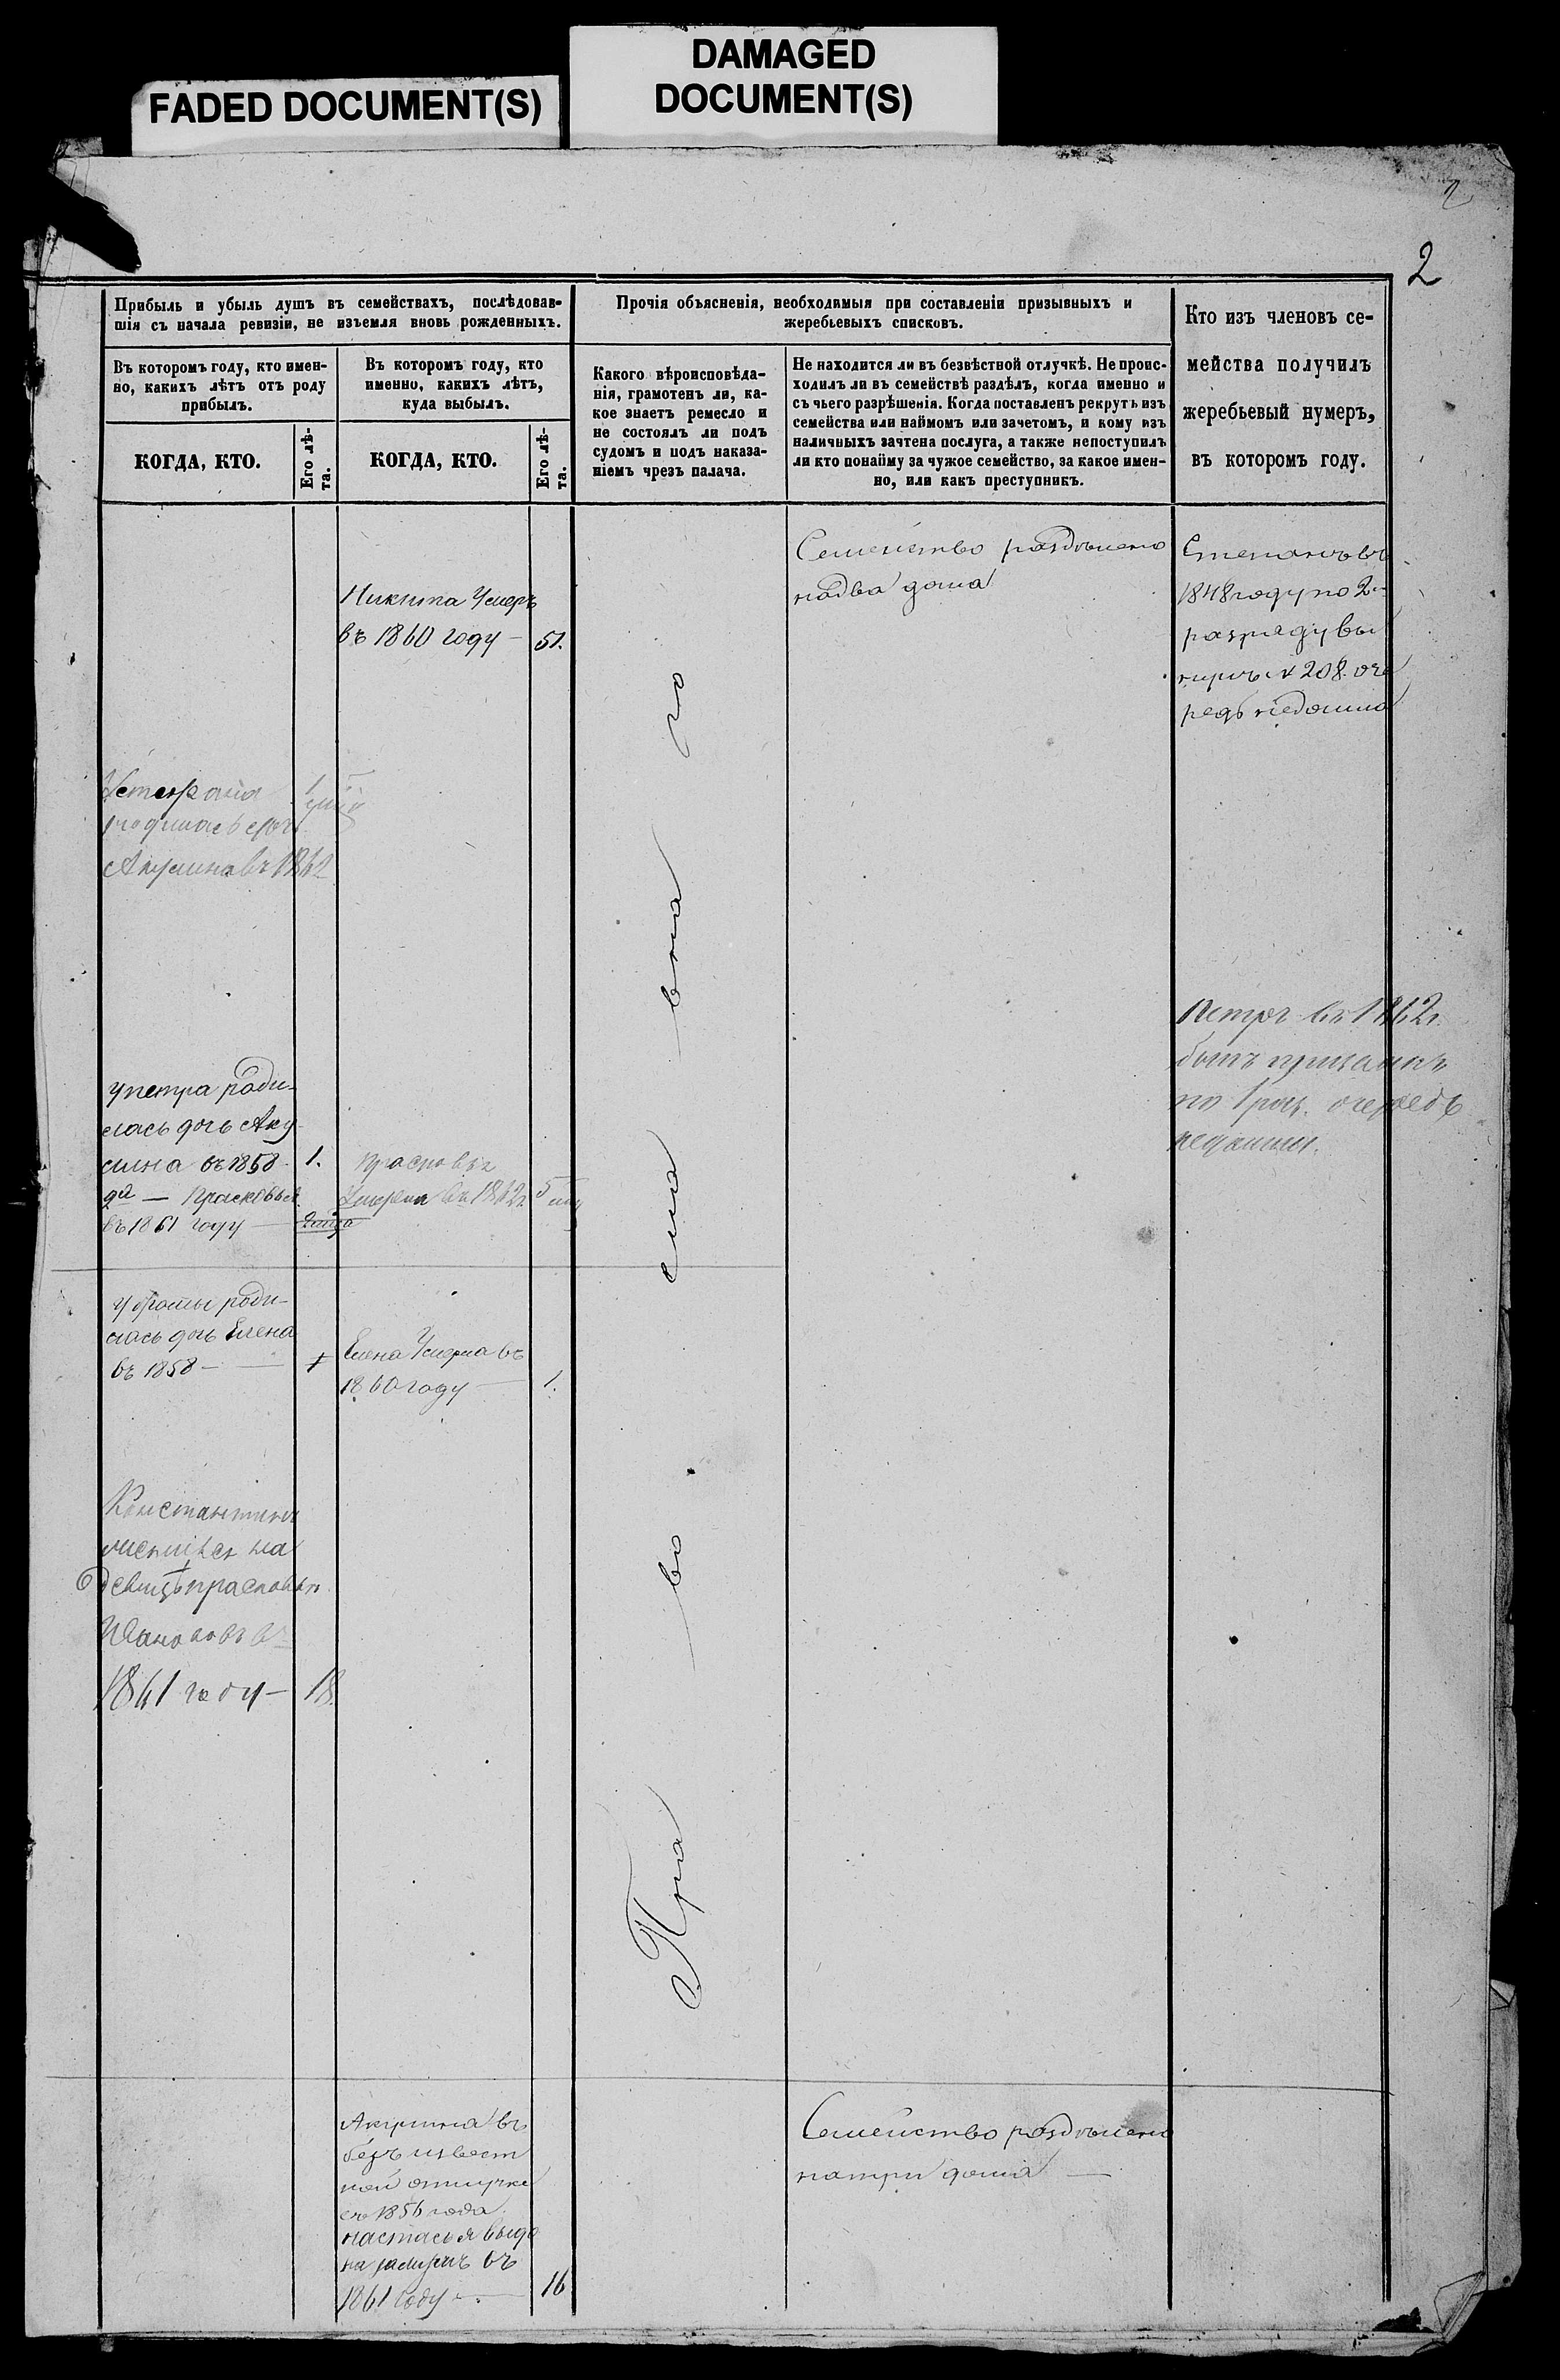 FADED DOCUMENT(S)
DAMAGED
DOCUMENT(S)
2
2
Прибыль и убыль душъ въ семействахъ, послѣдовав-
шія съ начала ревизіи, не изъемля вновь рожденныхъ.
Прочія объясненія, необходимыя при составленіи призывныхъ и
жеребьевыхъ списковъ.
Кто изъ членовъ се-
мейства получилъ
жеребьевый нумеръ,
въ которомъ году.
Въ которомъ году, кто имен-
но, какихъ лѣтъ отъ роду
прибылъ.
Въ которомъ году, кто
именно, какихъ лѣтъ,
куда выбылъ.
Какого вѣроисповѣда-
нія, грамотенъ ли, ка-
кое знаетъ ремесло и
не состоялъ ли подъ
судомъ и подъ наказа-
ніемъ чрезъ палача.
Не находится ли въ безвѣстной отлучкѣ. Не проис-
ходилъ ли въ семействѣ раздѣлъ, когда именно и
съ чьего разрѣшенія. Когда поставленъ рекрутъ изъ
семейства или наймомъ или зачетомъ, и кому изъ
наличныхъ зачтена послуга, а также непоступилъ
ли кто понайму за чужое семейство, за какое имен-
но, или какъ преступникъ.
КОГДА, КТО.
Его лѣ-
та.
КОГДА, КТО.
Его лѣ-
та.
Никита Умеръ
въ 1860 году — 51.
Семейство раздѣлено
надва дома
Степанъ въ
1848 году по 2
разряду вы
нулъ № 208. оче
редь недошла
родилась дочь
Акулина въ 1862
Петръ въ 1862 г.
былъ призванъ
по 1 раз. очередь
недошла.
у петра роди-
лась дочь Аку
лина въ 1858. 1.
да — Прасковья
въ 1861 году —
Прасковья
Умерла въ 1862 г 5
роди-
лась дочь Елена
въ 1858 —
Елена Умерла въ
1860 году — 1.
Константинъ
женился на
девицѣ прасковьѣ
Ивановой въ
1861 году — 18.
Пра во сла вна го
Акулина въ
безъ извест
ной отлучке
съ 1856 года.
настасья выда
на замужъ въ
1861 году — 16
Семейство раздѣлено
натри дома —